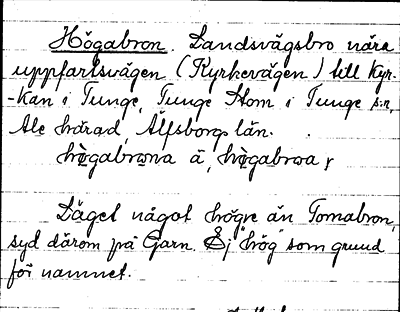 Högabron. Landsvägsbro nära
uppfartsvägen (Kyrkevägen) till Kyr-
-kan i Tunge, Tunge Hom i Tunge s:n,
Ale härad, Älfsborgs län.
högabrona ä, högabroa,
Läget något högre än Tomabron,
syd därom på Garn. Ej "hög" som grund
för namnet.